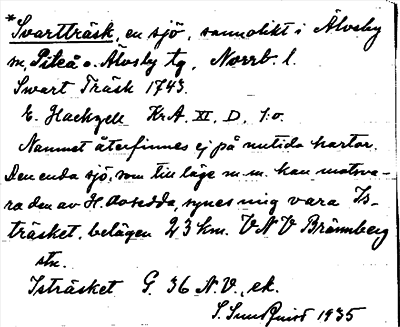 *Svartträsk, en sjö, sannolikt i Älvsby
m, Piteå o. Älvsby tg, Norrb. l.
Swart Träsk 1743.
E. Hackzell KrA. XI, D, 1:o.
Namnet återfinnes ej på nutida kartor.
Den enda sjö, som till läge m.m. kan motsva-
ra den av H. avsedda, synes mig vara Is-
träsket, belägen 23 km. VNV Brännberg
stn.
Isträsket G. 36 N.V., ek.
S. Sundqvist 1935